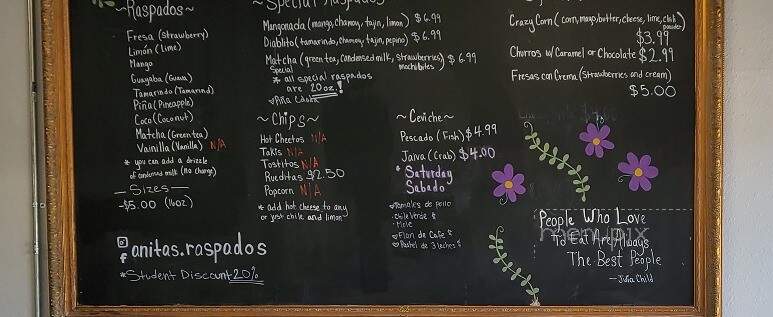 ~Raspados~
Fresa (Strawberry)
Limón (Lime)
Mango
Guayaba (Guava)
Tamarindo (Tamarind)
Piña (Pineapple)
Coco (Coconut)
Matcha (Green tea)
Vainilla (Vanilla) N/A
* you can add a drizzle
of condensed milk (no charge)
— Sizes —
-$5.00 (16oz)
anitas.raspados
*Student Discount 20%
~Special Raspados~
Mangonada (mango, chamoy, tajin, limon) $6.99
Diablito (tamarindo, chamoy, tajin, pepino) $6.99
Matcha (green tea, condensed milk, strawberries) $6.99
Special mochi bites
* all special raspados
are 20oz!
Piña
~Chips~
Hot Cheetos N/A
Takis N/A
Tostitos N/A
Rueditas $2.50
Popcorn N/A
* add hot cheese to any
or just chile and limon
~Ceviche~
Pescado (Fish) $4.99
Jaiva (Crab) $4.00
* Saturday
Sabado
Tamales de
- Chile Verde $
- Mole
Flan de Cafe $
Pastel de 3 leches $
Crazy Corn (corn, mayo/butter, cheese, lime, chili
powder)
$3.99
Churros w/ Caramel or Chocolate $2.99
Fresas con Crema (Strawberries and cream)
$5.00
People Who Love
To Eat Are Always
The Best People
— Julia Child
menupix